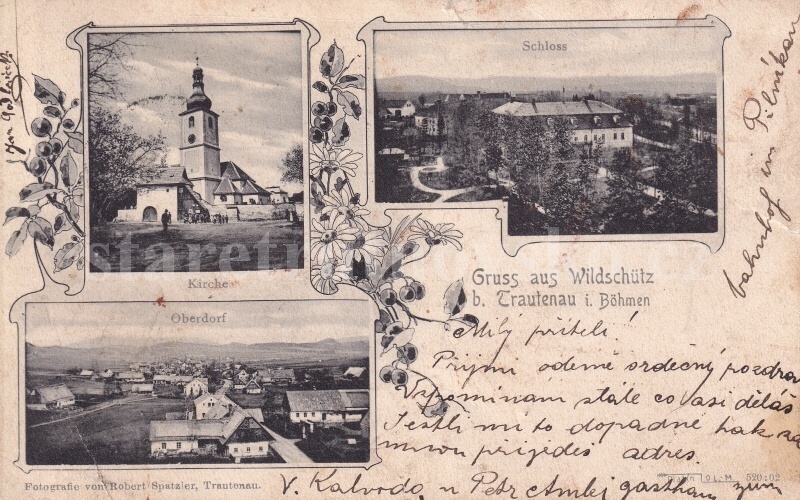 Schloss
Kirche
Oberdorf
Gruss aus Wildschütz
b. Trautenau i. Böhmen
Milý příteli!
Přijmi ódemě srdečný pozdrav
Vspomínám stále co asi děláš
Jestli mi to dopadné tak za
mnou přijedeš adres.
V. Kalvoda u Petr gasthaus zum
bahnhof in Pilníkau
Fotografie von Robert Spatzier, Trautenau.
520:02